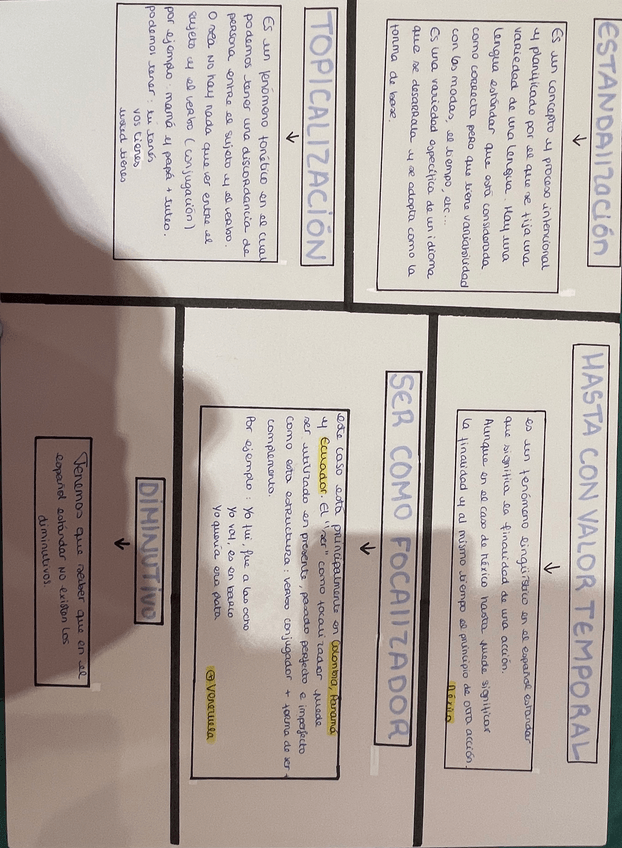 ESTANDALIZACIÓN
Es un concepto y proceso intencional
y planificado por el que se fija una
variedad de una lengua. Hay una
lengua estándar que está considerada
como correcta pero que tiene variabilidad
con las modas, el tiempo, etc...
Es una variedad específica de un idioma
que se desarrolla y se adopta como la
forma de base.
TOPICALIZACIÓN
Es un fenómeno fonético en el cual
podemos tener una discordancia de
persona entre el sujeto y el verbo.
O sea no hay nada que ver entre el
sujeto y el verbo (conjugación)
por ejemplo mamá y papá + tuteo,
podemos tener: tu tenés
vos tienes
usted tienes
HASTA CON VALOR TEMPORAL
es un fenómeno lingüístico en el español estándar
que significa la finalidad de una acción.
Aunque en el caso de México hasta puede significar
la finalidad y al mismo tiempo el principio de otra acción.
México
SER COMO FOCALIZADOR
este caso está principalmente en Colombia, Panamá
y Ecuador. El "ser" como focalizador puede
ser utilizado en presente, pasado perfecto e imperfecto
como esta estructura: verbo conjugador + forma de ser +
complemento.
Por ejemplo: Yo fui, fue a las ocho
Yo voy es en barco
Yo quería era plata
+ Venezuela
DIMINUTIVO
Tenemos que saber que en el
español estándar no existen los
diminutivos.